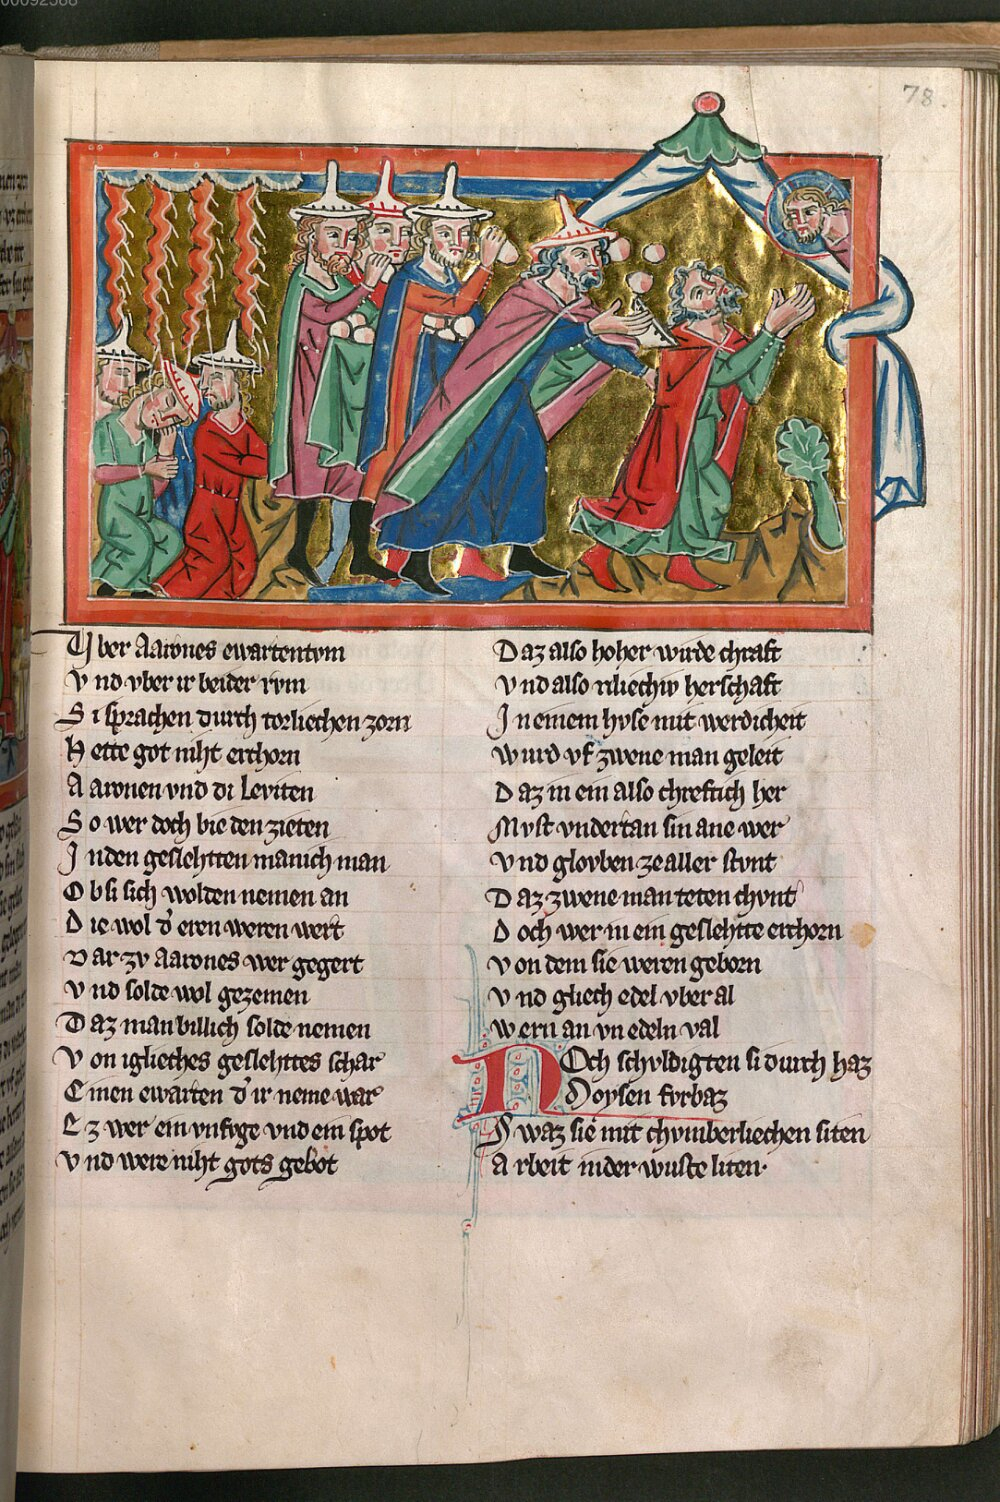 78.
Vber Aarones ewartentvm
Vnd vber ir beider rvm
Si sprachen durch torliechen zorn
Hette got niht erchorn
Aaronen vnd di Leviten
So wer doch bie den zieten
In den geslehtten manich man
Ob si sich wolden nemen an
Die wol d' eren weren wert
Dar zv Aarones wer gegert
Vnd solde wol gezemen
Daz man billich solde nemen
Von iglieches geslehttes schar
Einen ewarten d' ir neme war
Ez wer ein vnfvge vnd ein spot
Vnd were niht gots gebot
Daz also hoher wirde chraft
Vnd also rliechiv herschaft
In einem hvse mit werdicheit
Wurd vf zwene man geleit
Daz in ein also chreftich her
Mvst vndertan sin ane wer
Vnd glovben ze aller stvnt
Daz zwene man teten chvnt
Doch wer in ein geslehtte erchorn
Von dem sie weren geborn
Vnd gliech edel vber al
Wern an vnedeln val
Noch schvldigten si durch haz
Moysen fvrbaz
Swaz sie mit chvmberliechen siten
Arbeit in der wuste liten.